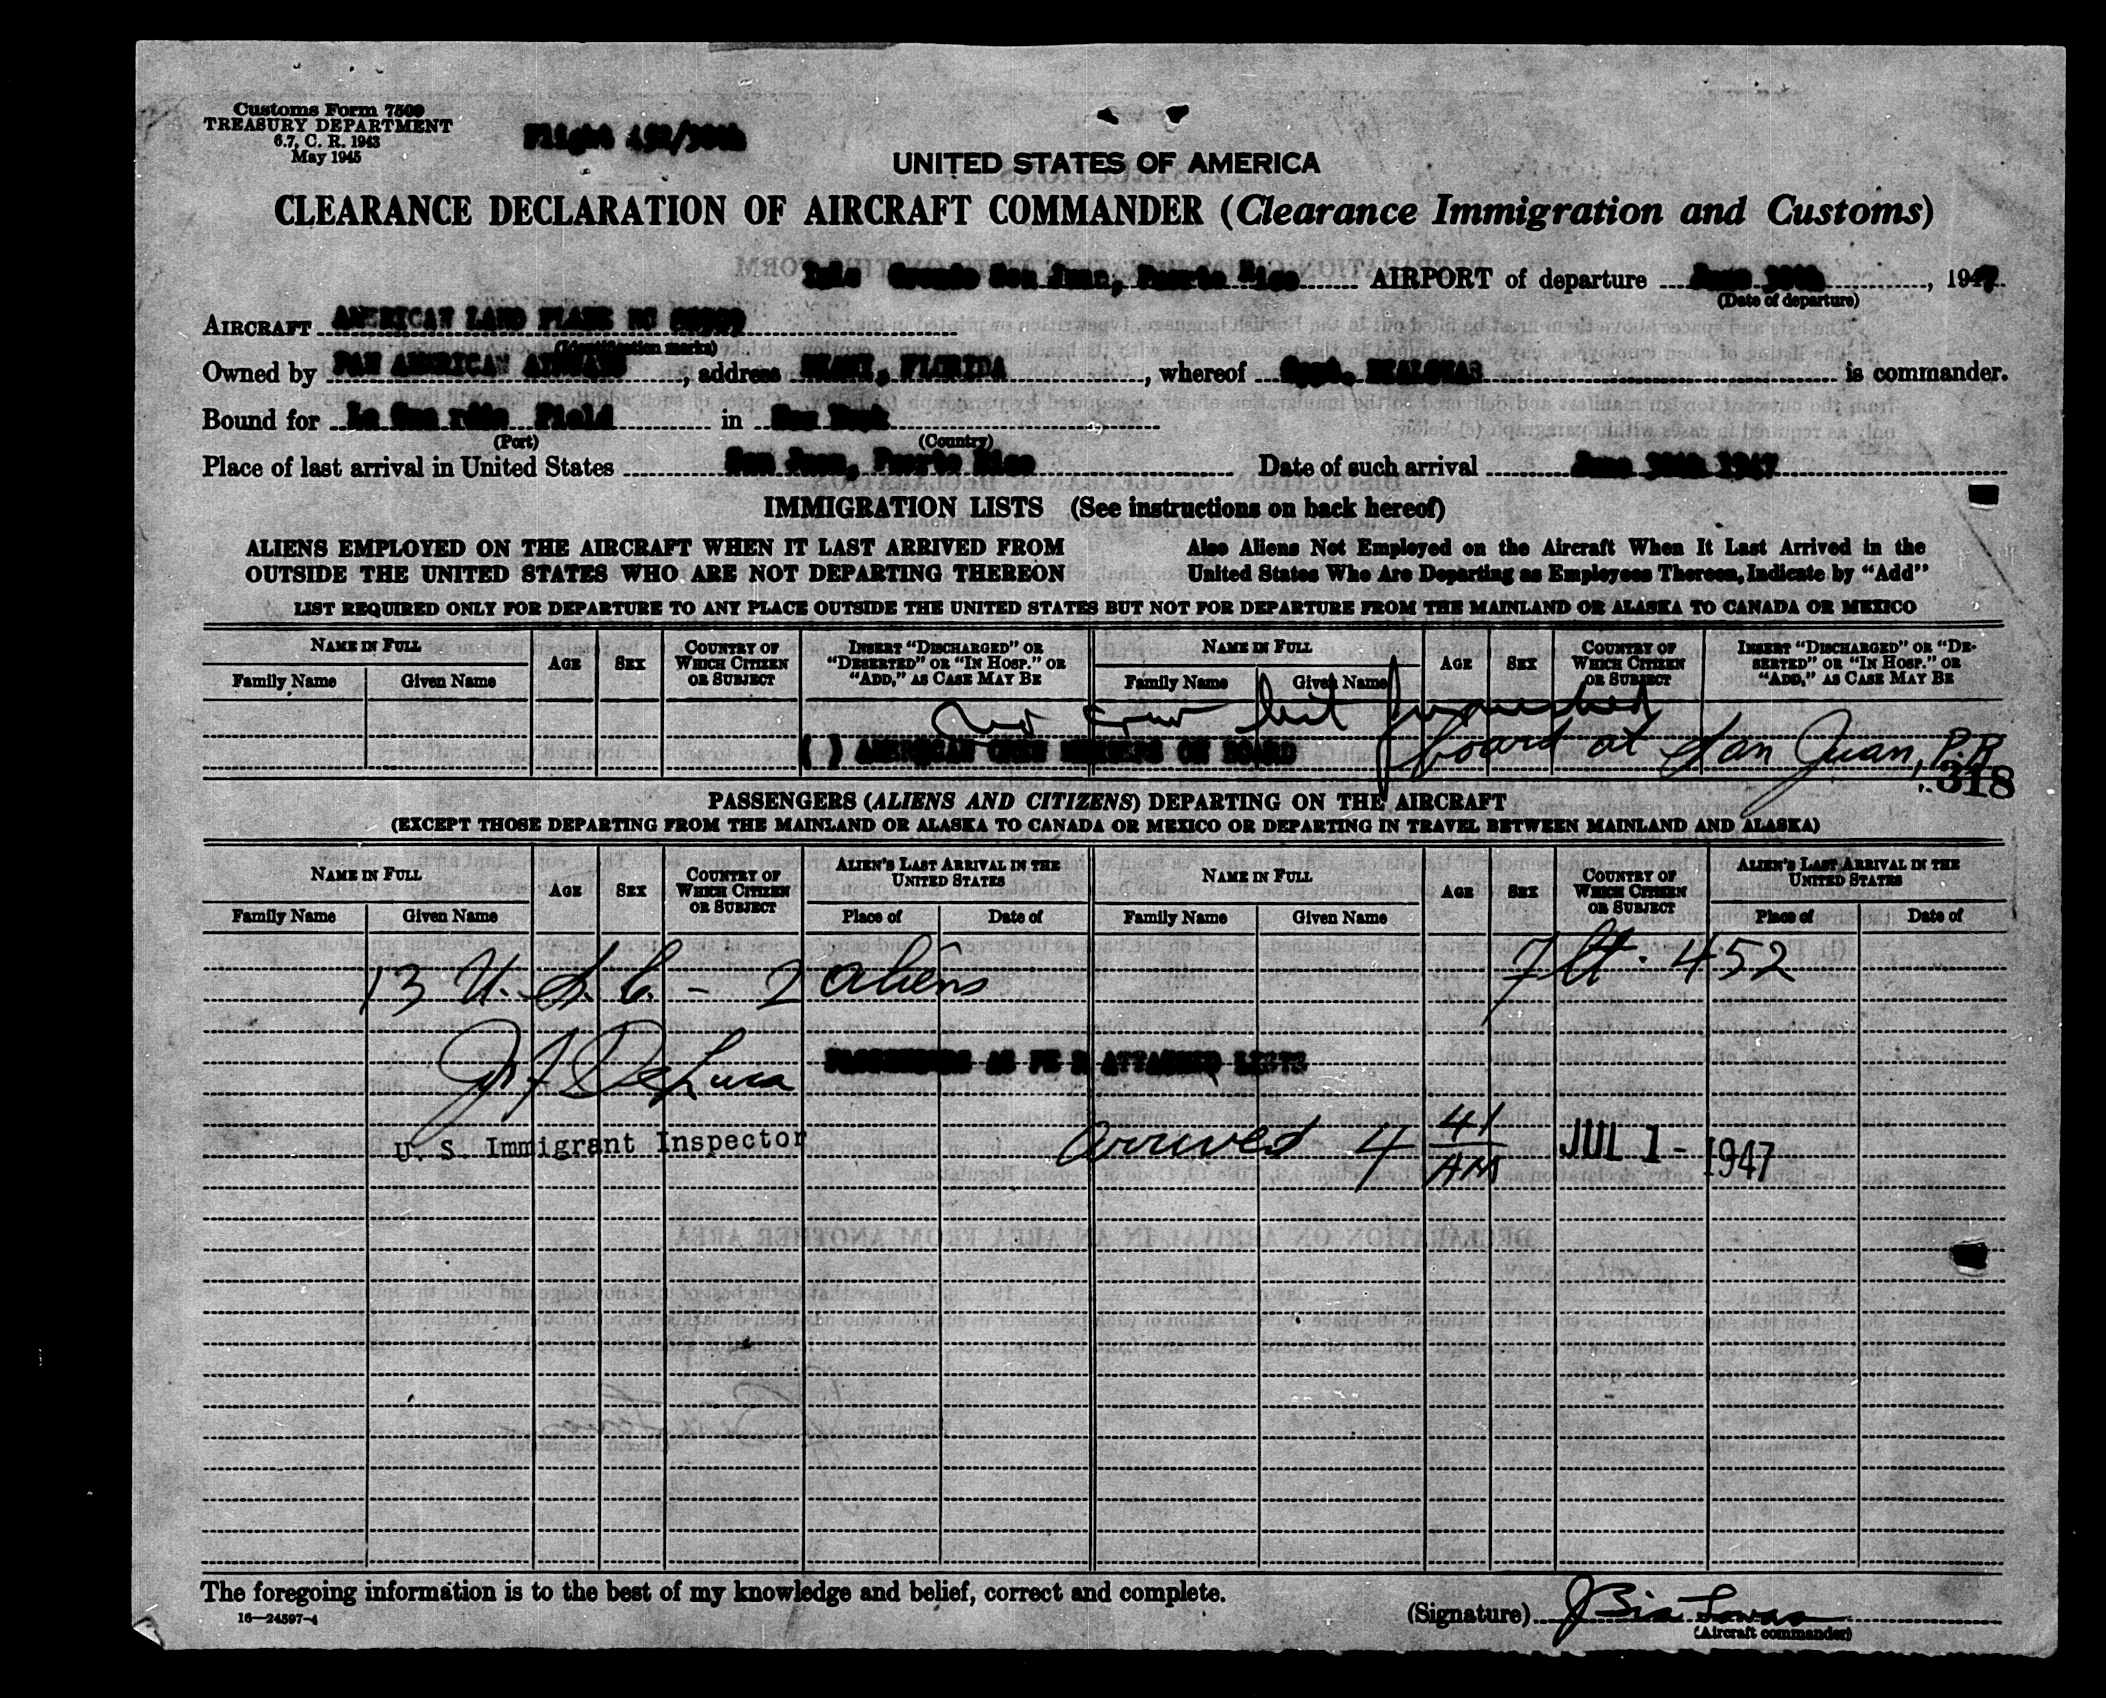 Customs Form 7509
TREASURY DEPARTMENT
6.7, C. R. 1943
May 1945
Flight 452/30th
UNITED STATES OF AMERICA
CLEARANCE DECLARATION OF AIRCRAFT COMMANDER (Clearance Immigration and Customs)
Isle Grande San Juan, Puerto Rico AIRPORT of departure June 30th, 1947
(Date of departure)
AIRCRAFT AMERICAN LAND PLANE NC
(Identification marks)
Owned by PAN AMERICAN AIRWAYS, address MIAMI, FLORIDA, whereof Capt. is commander.
Bound for La Guardia Field in New York
(Port) (Country)
Place of last arrival in United States San Juan, Puerto Rico Date of such arrival June 30th 1947
IMMIGRATION LISTS (See instructions on back hereof)
ALIENS EMPLOYED ON THE AIRCRAFT WHEN IT LAST ARRIVED FROM OUTSIDE THE UNITED STATES WHO ARE NOT DEPARTING THEREON
Also Aliens Not Employed on the Aircraft When It Last Arrived in the United States Who Are Departing as Employees Thereon, Indicate by "Add"
LIST REQUIRED ONLY FOR DEPARTURE TO ANY PLACE OUTSIDE THE UNITED STATES BUT NOT FOR DEPARTURE FROM THE MAINLAND OR ALASKA TO CANADA OR MEXICO
NAME IN FULL AGE SEX COUNTRY OF WHICH CITIZEN OR SUBJECT INSERT "DISCHARGED" OR "DESERTED" OR "IN HOSP." OR "ADD," AS CASE MAY BE NAME IN FULL AGE SEX COUNTRY OF WHICH CITIZEN OR SUBJECT INSERT "DISCHARGED" OR "DESERTED" OR "IN HOSP." OR "ADD," AS CASE MAY BE
Family Name Given Name Family Name Given Name
crew list
( ) AMERICAN CREW MEMBERS ON BOARD board at San Juan, P.R.
318
PASSENGERS (ALIENS AND CITIZENS) DEPARTING ON THE AIRCRAFT
(EXCEPT THOSE DEPARTING FROM THE MAINLAND OR ALASKA TO CANADA OR MEXICO OR DEPARTING IN TRAVEL BETWEEN MAINLAND AND ALASKA)
NAME IN FULL AGE SEX COUNTRY OF WHICH CITIZEN OR SUBJECT ALIEN'S LAST ARRIVAL IN THE UNITED STATES NAME IN FULL AGE SEX COUNTRY OF WHICH CITIZEN OR SUBJECT ALIEN'S LAST ARRIVAL IN THE UNITED STATES
Family Name Given Name Place of Date of Family Name Given Name Place of Date of
13 U.S.C. - 2 aliens Flt. 452
DeLuca
PASSENGERS AS PER ATTACHED LISTS
U. S. Immigrant Inspector
arrived 4 41 AM JUL 1 - 1947
The foregoing information is to the best of my knowledge and belief, correct and complete.
16—24597-4
(Signature)
(Aircraft commander)